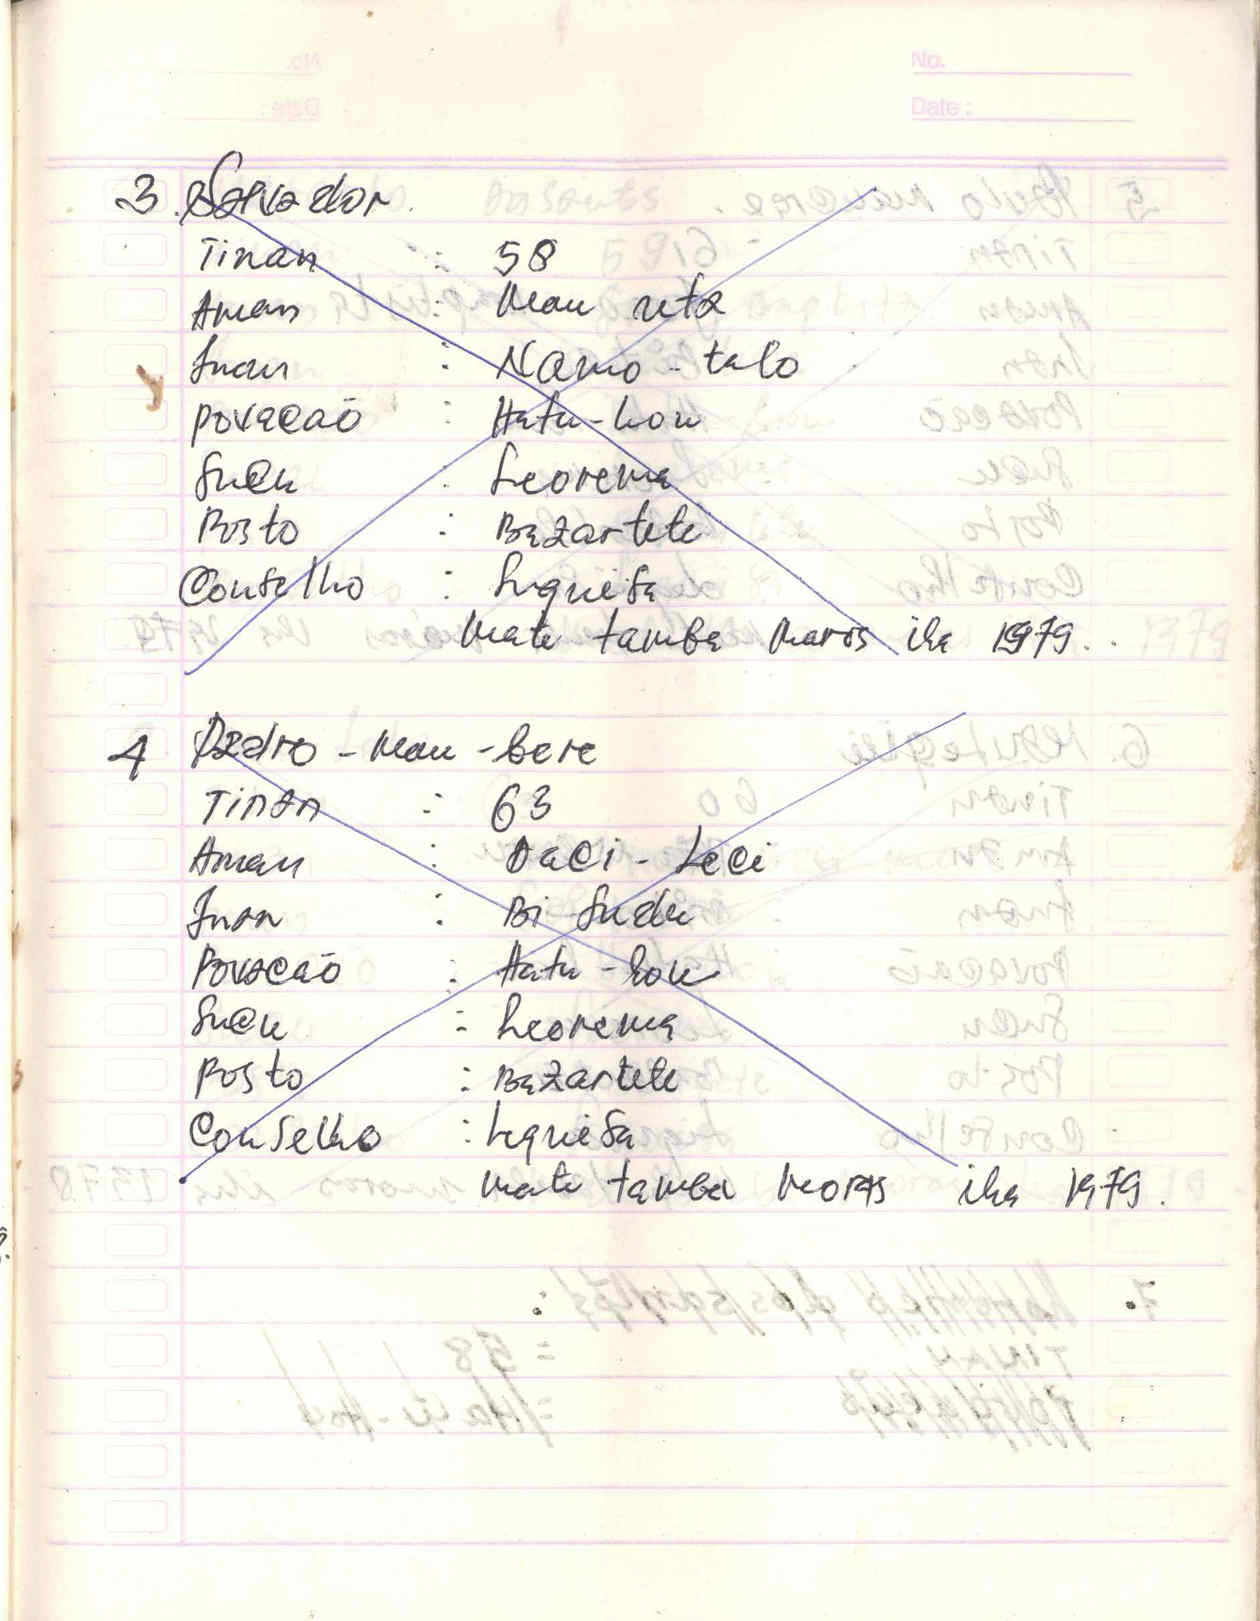 No.
Date:
3. Salvador.
Tinan : 58
Aman : Mau reta
Inan : Namo-talo
Povacaõ : Hatu-hou
Sucu : Leorema
Posto : Bazartete
Conselho : Liquisa
Mate tamba moras iha 1979..
4 Pedro-Mau-bere
Tinan : 63
Aman : Daci-Leci
Inan : Bi-Sudu
Povacaõ : Hatu-hou
Sucu : Leorema
Posto : Bazartete
Conselho : Liquisa
Mate tamba moras iha 1979.